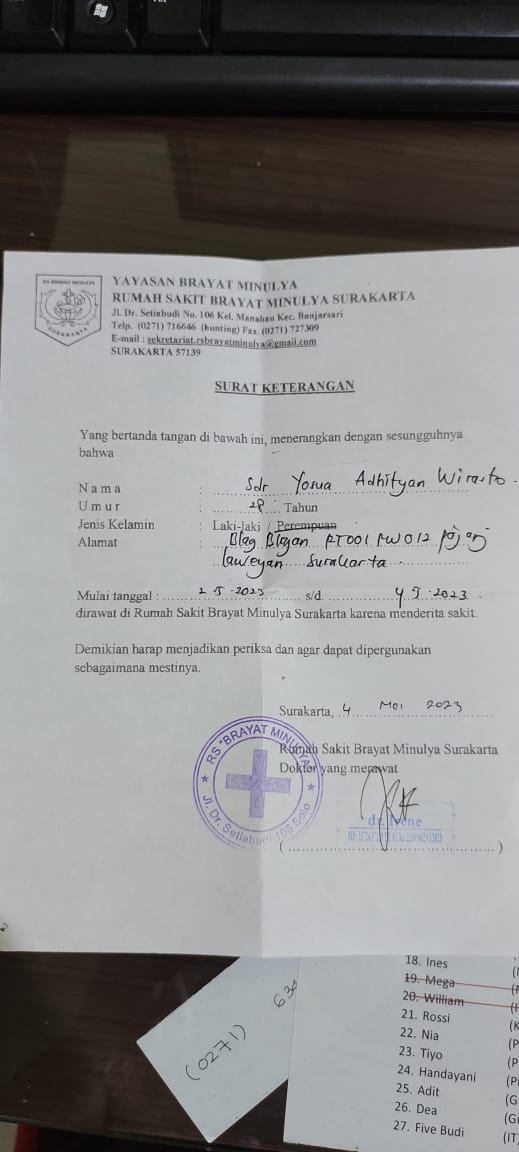 RS BRAYAT MINULYA
SURAKARTA
YAYASAN BRAYAT MINULYA
RUMAH SAKIT BRAYAT MINULYA SURAKARTA
Jl. Dr. Setiabudi No. 106 Kel. Manahan Kec. Banjarsari
Telp. (0271) 716646 (hunting) Fax. (0271) 727309
E-mail : sekretariat.rsbrayatminulya@gmail.com
SURAKARTA 57139
SURAT KETERANGAN
Yang bertanda tangan di bawah ini, menerangkan dengan sesungguhnya
bahwa
Nama : Sdr Yosua Adhityan Wirasto
Umur : 28 Tahun
Jenis Kelamin : Laki-laki / Perempuan
Alamat : RT001 RW012 Pajang
laweyan Surakarta
Mulai tanggal : 2-5-2023 s/d. 4 5-2023
dirawat di Rumah Sakit Brayat Minulya Surakarta karena menderita sakit.
Demikian harap menjadikan periksa dan agar dapat dipergunakan
sebagaimana mestinya.
Surakarta, 4 Mei 2023
Rumah Sakit Brayat Minulya Surakarta
Dokter yang merawat
RS "BRAYAT MINULYA"
Jl. Dr. Setiabudi 106 Solo
dr. Irene
(0271) 630
18. Ines
19. Mega
20. William
21. Rossi
22. Nia
23. Tiyo
24. Handayani
25. Adit
26. Dea
27. Five Budi (IT,